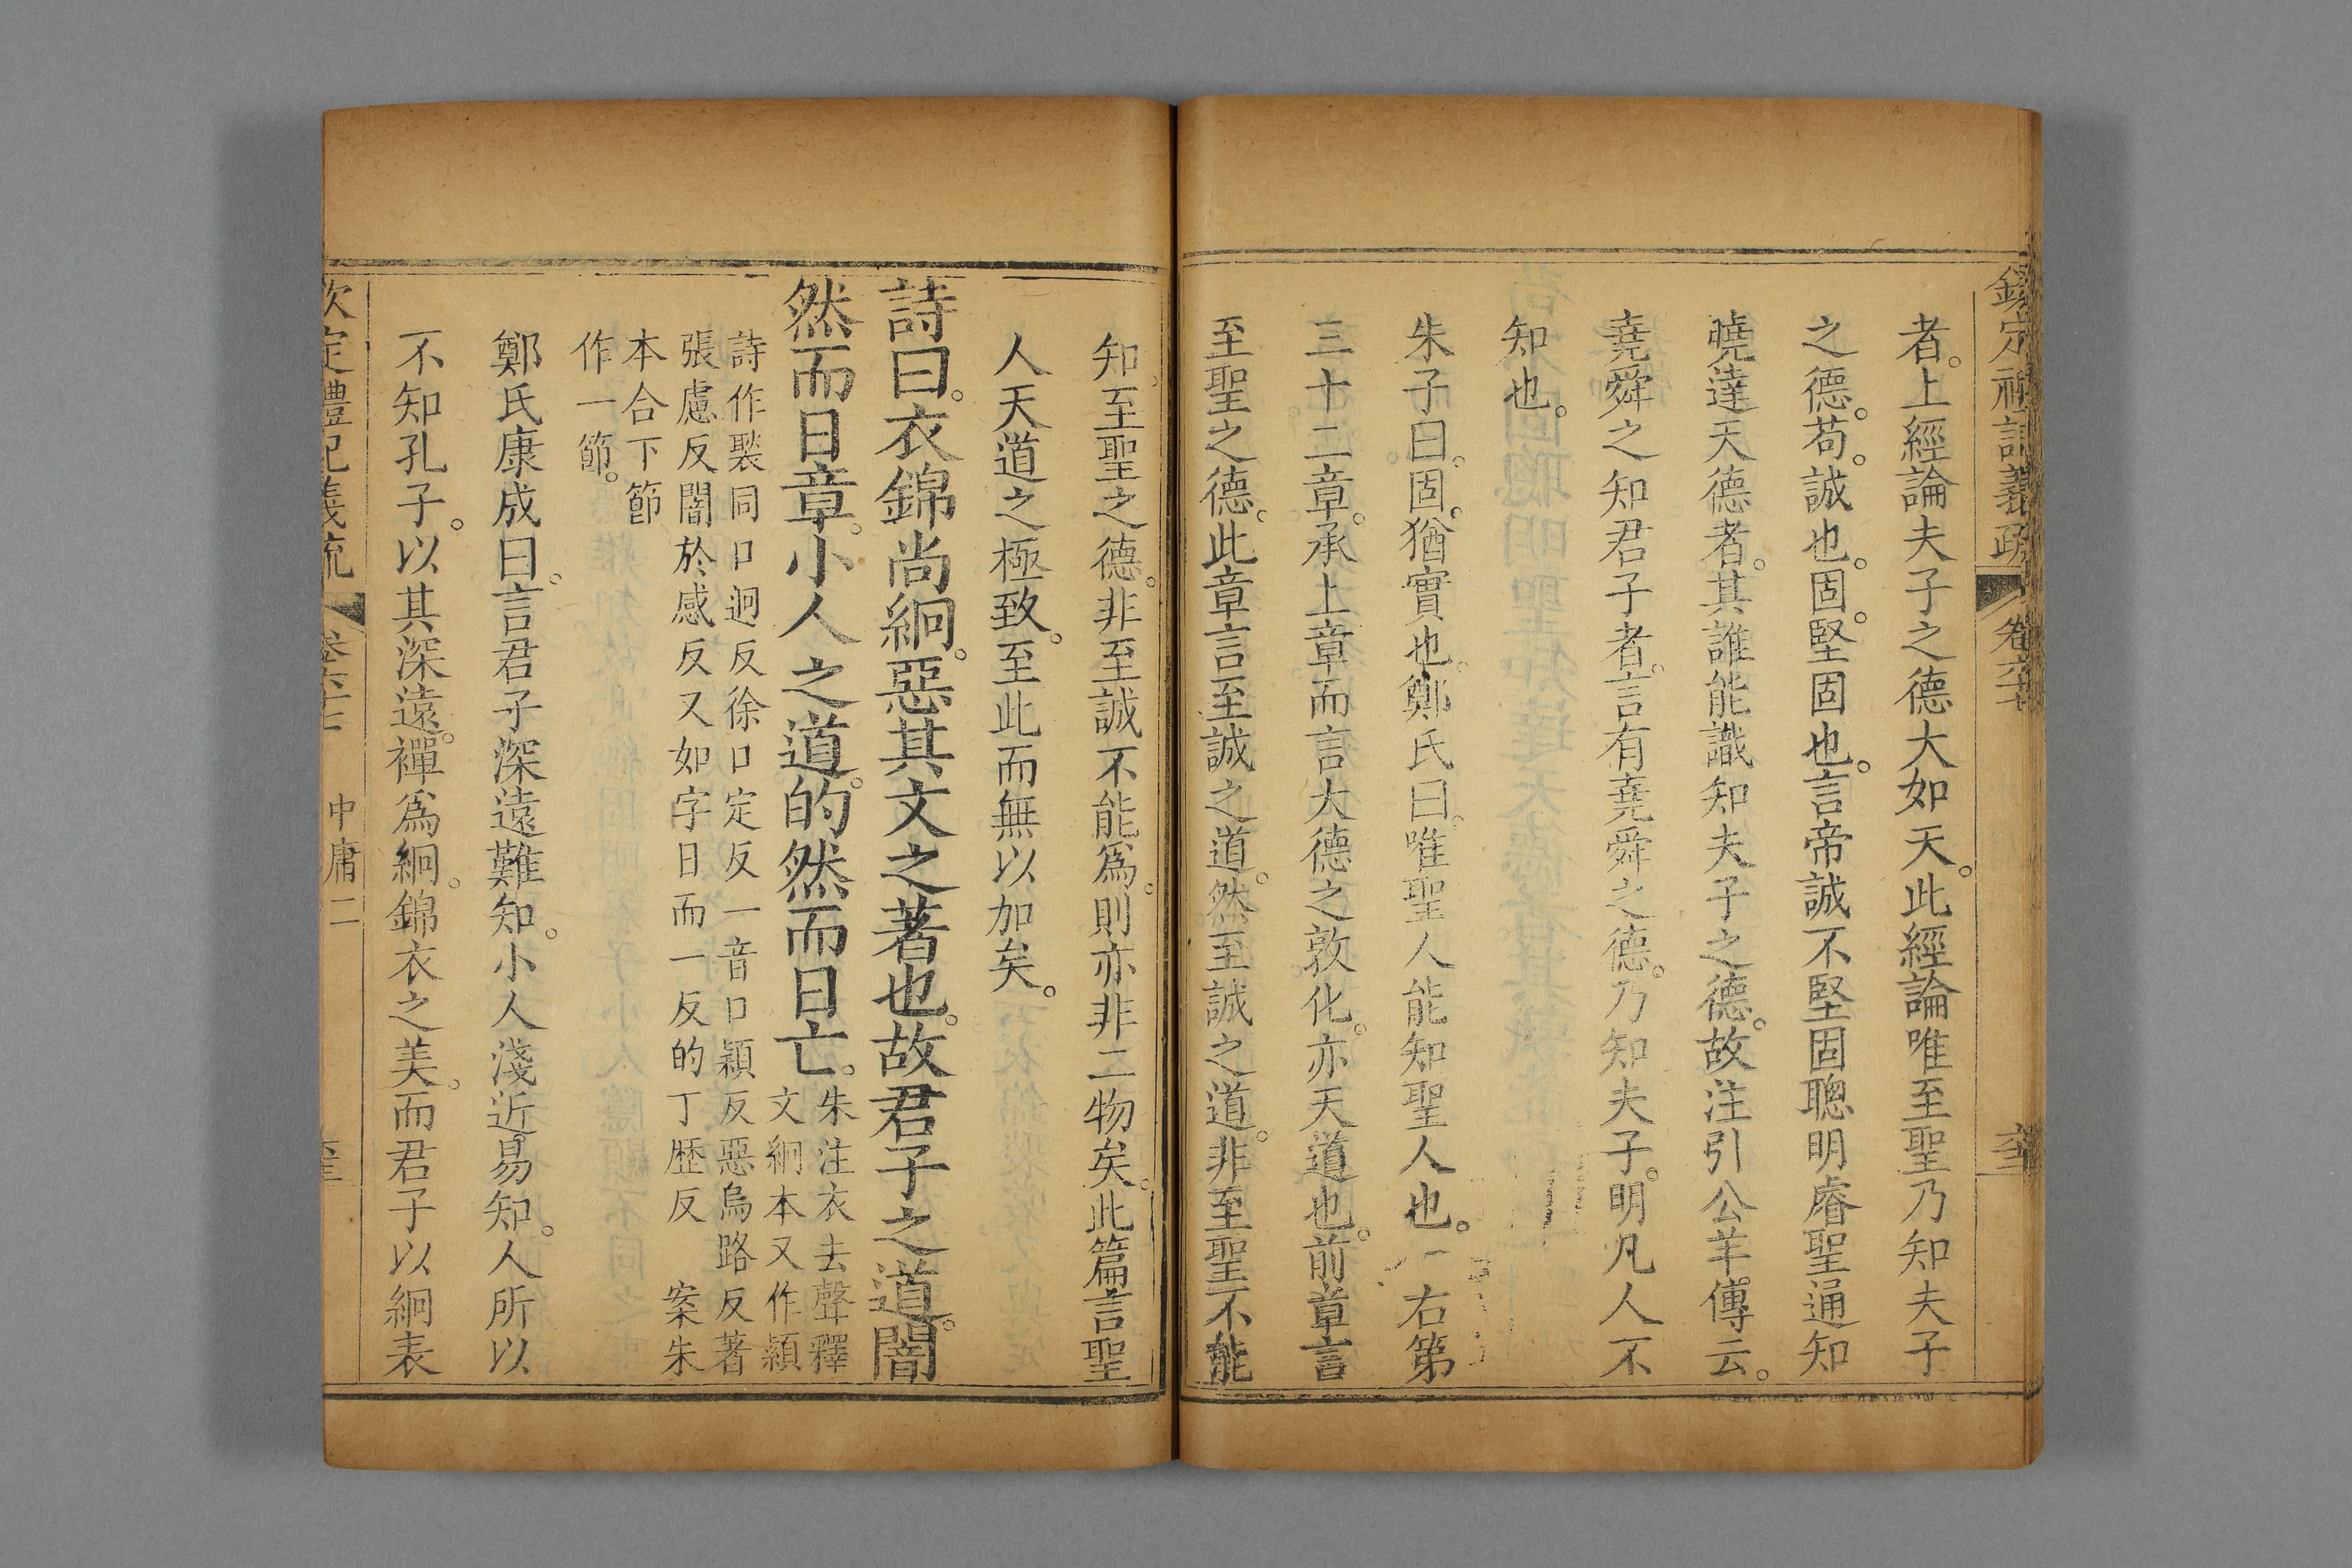 者。上經論夫子之德大如天。此經論唯至聖乃知夫子
之德。苟。誠也。固。堅固也。言帝誠不堅固聰明睿聖通知
曉達天德者。其誰能識知夫子之德。故注引公羊傳云。
堯舜之知君子者。言有堯舜之德。乃知夫子。明凡人不
知也。
朱子曰。固。猶實也。鄭氏曰。唯聖人能知聖人也。 右第
三十二章。承上章而言大德之敦化。亦天道也。前章言
至聖之德。此章言至誠之道。然至誠之道。非至聖不能
知。至聖之德。非至誠不能爲。則亦非二物矣。此篇言聖
人天道之極致。至此而無以加矣。
詩曰。衣錦尚絅。惡其文之著也。故君子之道。闇
然而日章。小人之道。的然而日亡。
朱注衣去聲釋
文絅本又作穎
詩作褧同口迥反徐口定反一音口穎反惡烏路反著
張慮反闇於感反又如字日而一反的丁歷反 案朱
本合下節
作一節。
鄭氏康成曰。言君子深遠難知。小人淺近易知。人所以
不知孔子。以其深遠。禪爲絅。錦衣之美。而君子以絅表
欽定禮記義疏
中庸二